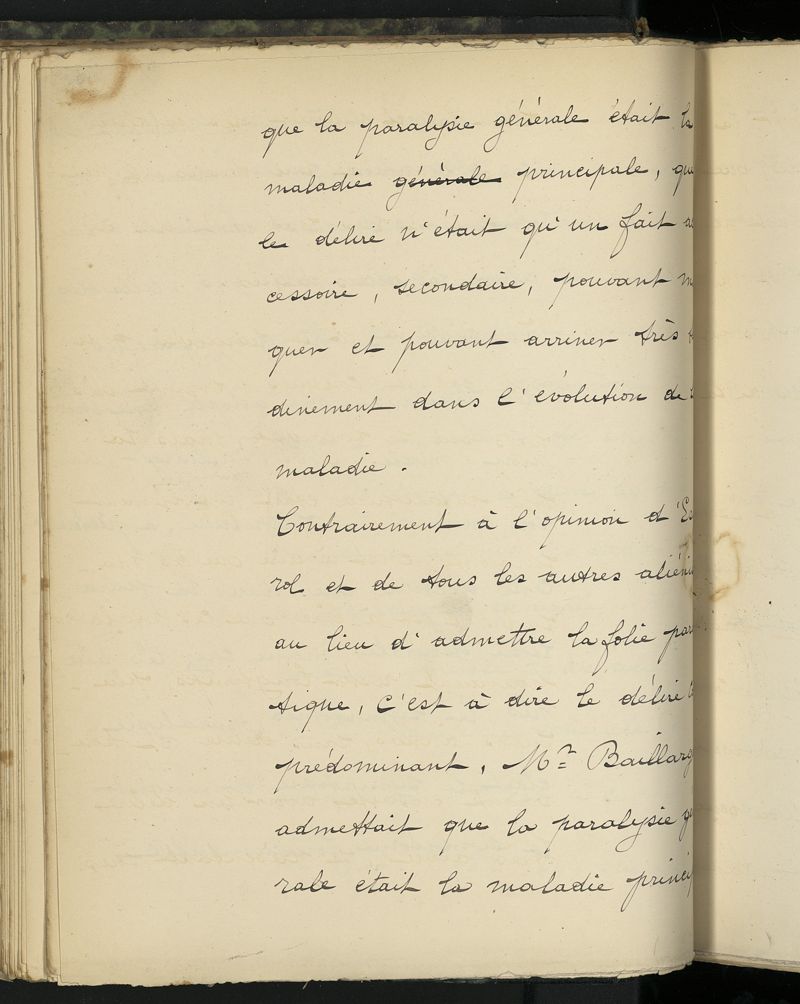 que la paralysie générale était la
maladie générale principale, que
le délire n'était qu'un fait ac
cessoire, secondaire, pouvant m
quer et pouvant arriver très
dinement dans l'évolution de
maladie.
Contrairement à l'opinion d'Es
rol et de tous les autres aliéni
au lieu d'admettre la folie par
tique, c'est à dire le délire
prédominant, Mr Baillarg
admettait que la paralysie gé
rale était la maladie princip